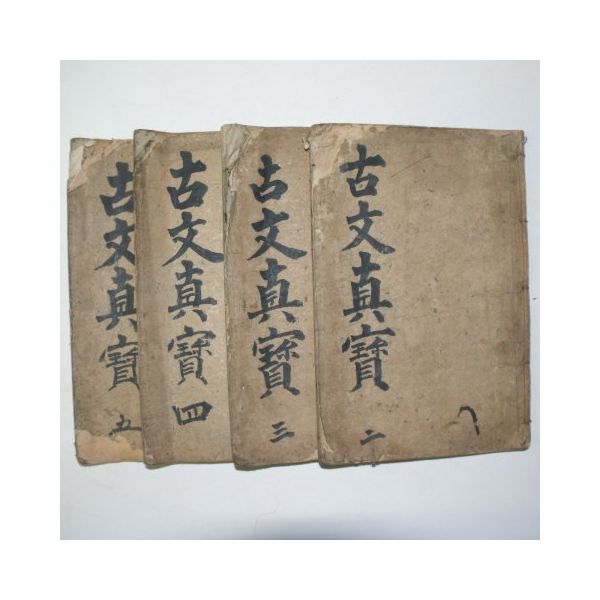 古文真寶
二
古文真寶
三
古文真寶
四
古文真寶
五